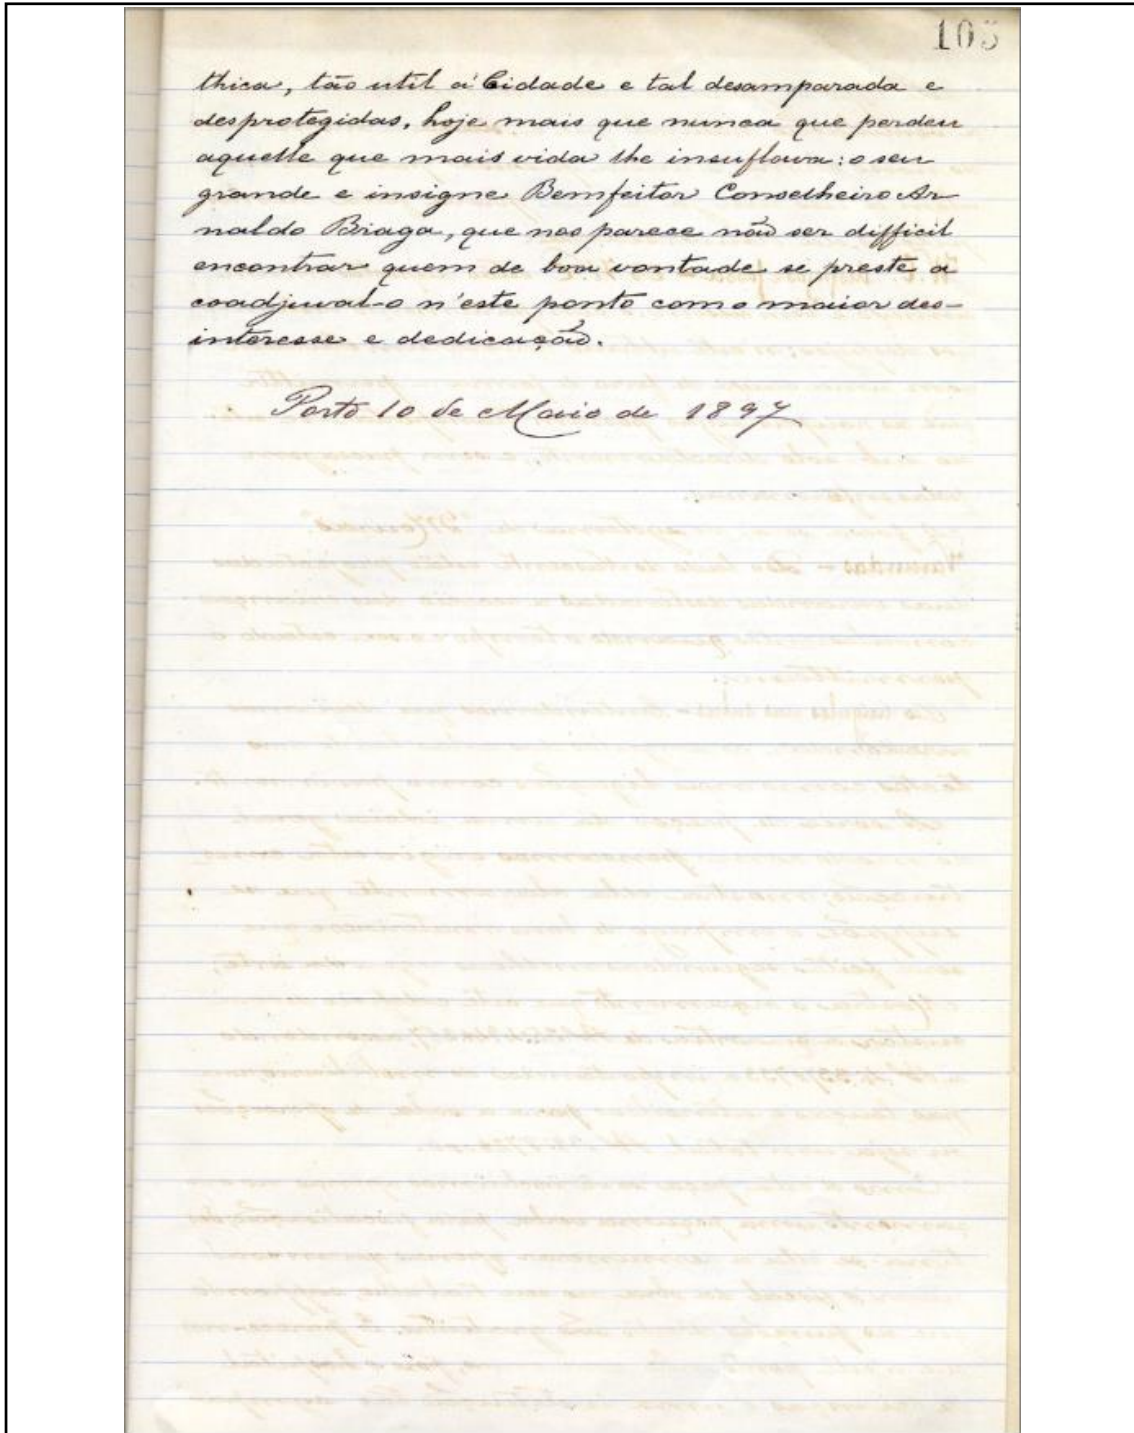 105
thica, tão util á Cidade e tal desamparada e
desprotegidas, hoje mais que nunca que perdeu
aquelle que mais vida lhe insuflava: o seu
grande e insigne Bemfeitor Conselheiro Ar
naldo Braga, que nos parece não ser difficil
encontrar quem de boa vontade se preste a
coadjuval-o n'este ponto com o maior des-
interesse e dedicação.
Porto 10 de Maio de 1897